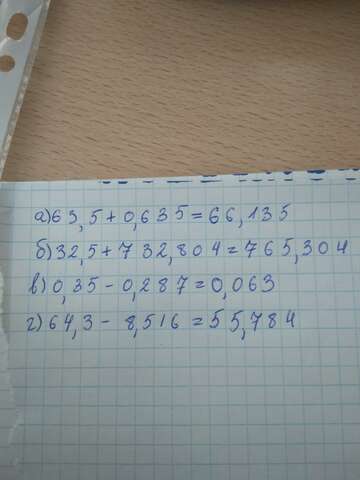 а) 63,5 + 0,635 = 66,135
б) 32,5 + 732,804 = 765,304
в) 0,35 - 0,287 = 0,063
г) 64,3 - 8,516 = 55,784